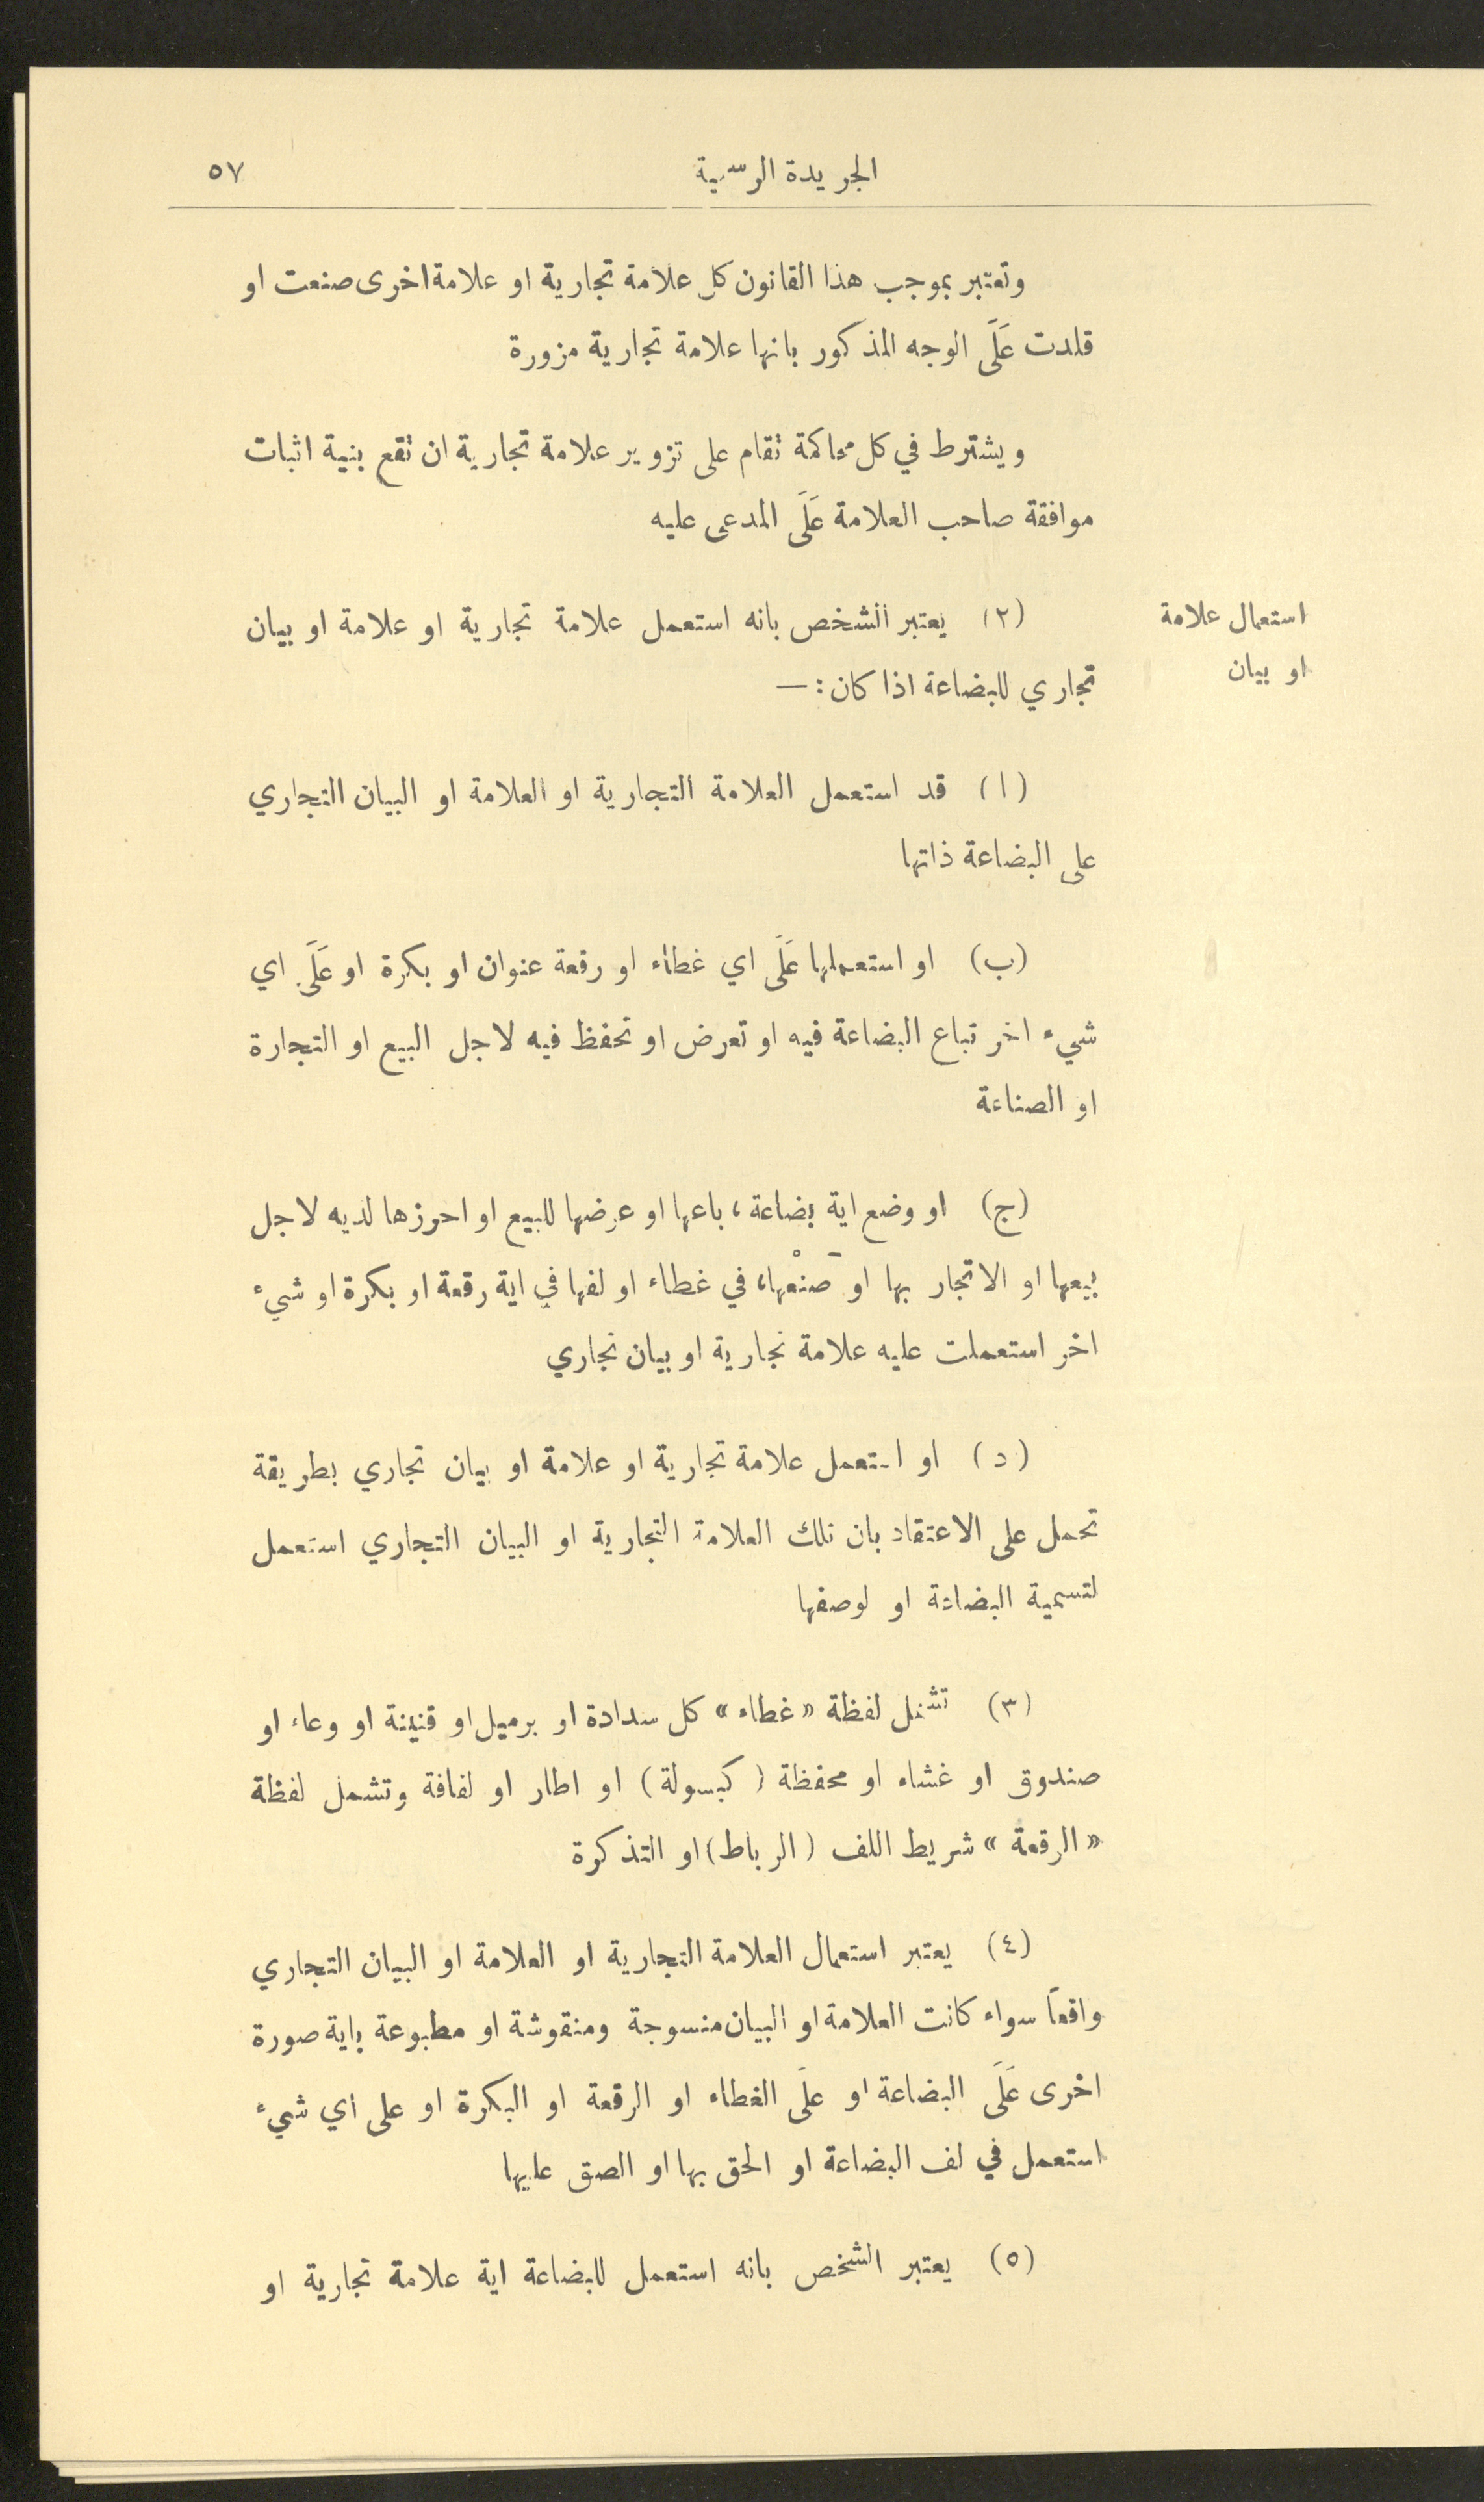 الجريدة الرسمية ٥٧
وتعتبر بموجب هذا القانون كل علامة تجارية او علامة اخرى صنعت او
قلدت عَلَى الوجه المذكور بانها علامة تجارية مزورة
ويشترط في كل محاكمة تقام على تزوير علامة تجارية ان تقع بنية اثبات
موافقة صاحب العلامة عَلَى المدعى عليه
استعمال علامة
او بيان
(٢) يعتبر الشخص بانه استعمل علامة تجارية او علامة او بيان
تجاري للبضاعة اذا كان : —
(ا) قد استعمل العلامة التجارية او العلامة او البيان التجاري
على البضاعة ذاتها
(ب) او استعملها عَلَى اي غطاء او رقعة عنوان او بكرة او عَلَى اي
شيء اخر تباع البضاعة فيه او تعرض او تحفظ فيه لاجل البيع او التجارة
او الصناعة
(ج) او وضع اية بضاعة ، باعها او عرضها للبيع او احرزها لديه لاجل
بيعها او الاتجار بها او صنعها، في غطاء او لفها في اية رقعة او بكرة او شيء
اخر استعملت عليه علامة تجارية او بيان تجاري
(د) او استعمل علامة تجارية او علامة او بيان تجاري بطريقة
تحمل على الاعتقاد بان تلك العلامة التجارية او البيان التجاري استعمل
لتسمية البضاعة او لوصفها
(٣) تشمل لفظة «غطاء» كل سدادة او برميل او قنينة او وعاء او
صندوق او غشاء او محفظة (كبسولة) او اطار او لفافة وتشمل لفظة
«الرقعة» شريط اللف (الرباط) او التذكرة
(٤) يعتبر استعمال العلامة التجارية او العلامة او البيان التجاري
واقعاً سواء كانت العلامة او البيان منسوجة ومنقوشة او مطبوعة باية صورة
اخرى عَلَى البضاعة او علَى الغطاء او الرقعة او البكرة او على اي شيء
استعمل في لف البضاعة او الحق بها او الصق عليها
(٥) يعتبر الشخص بانه استعمل للبضاعة اية علامة تجارية او